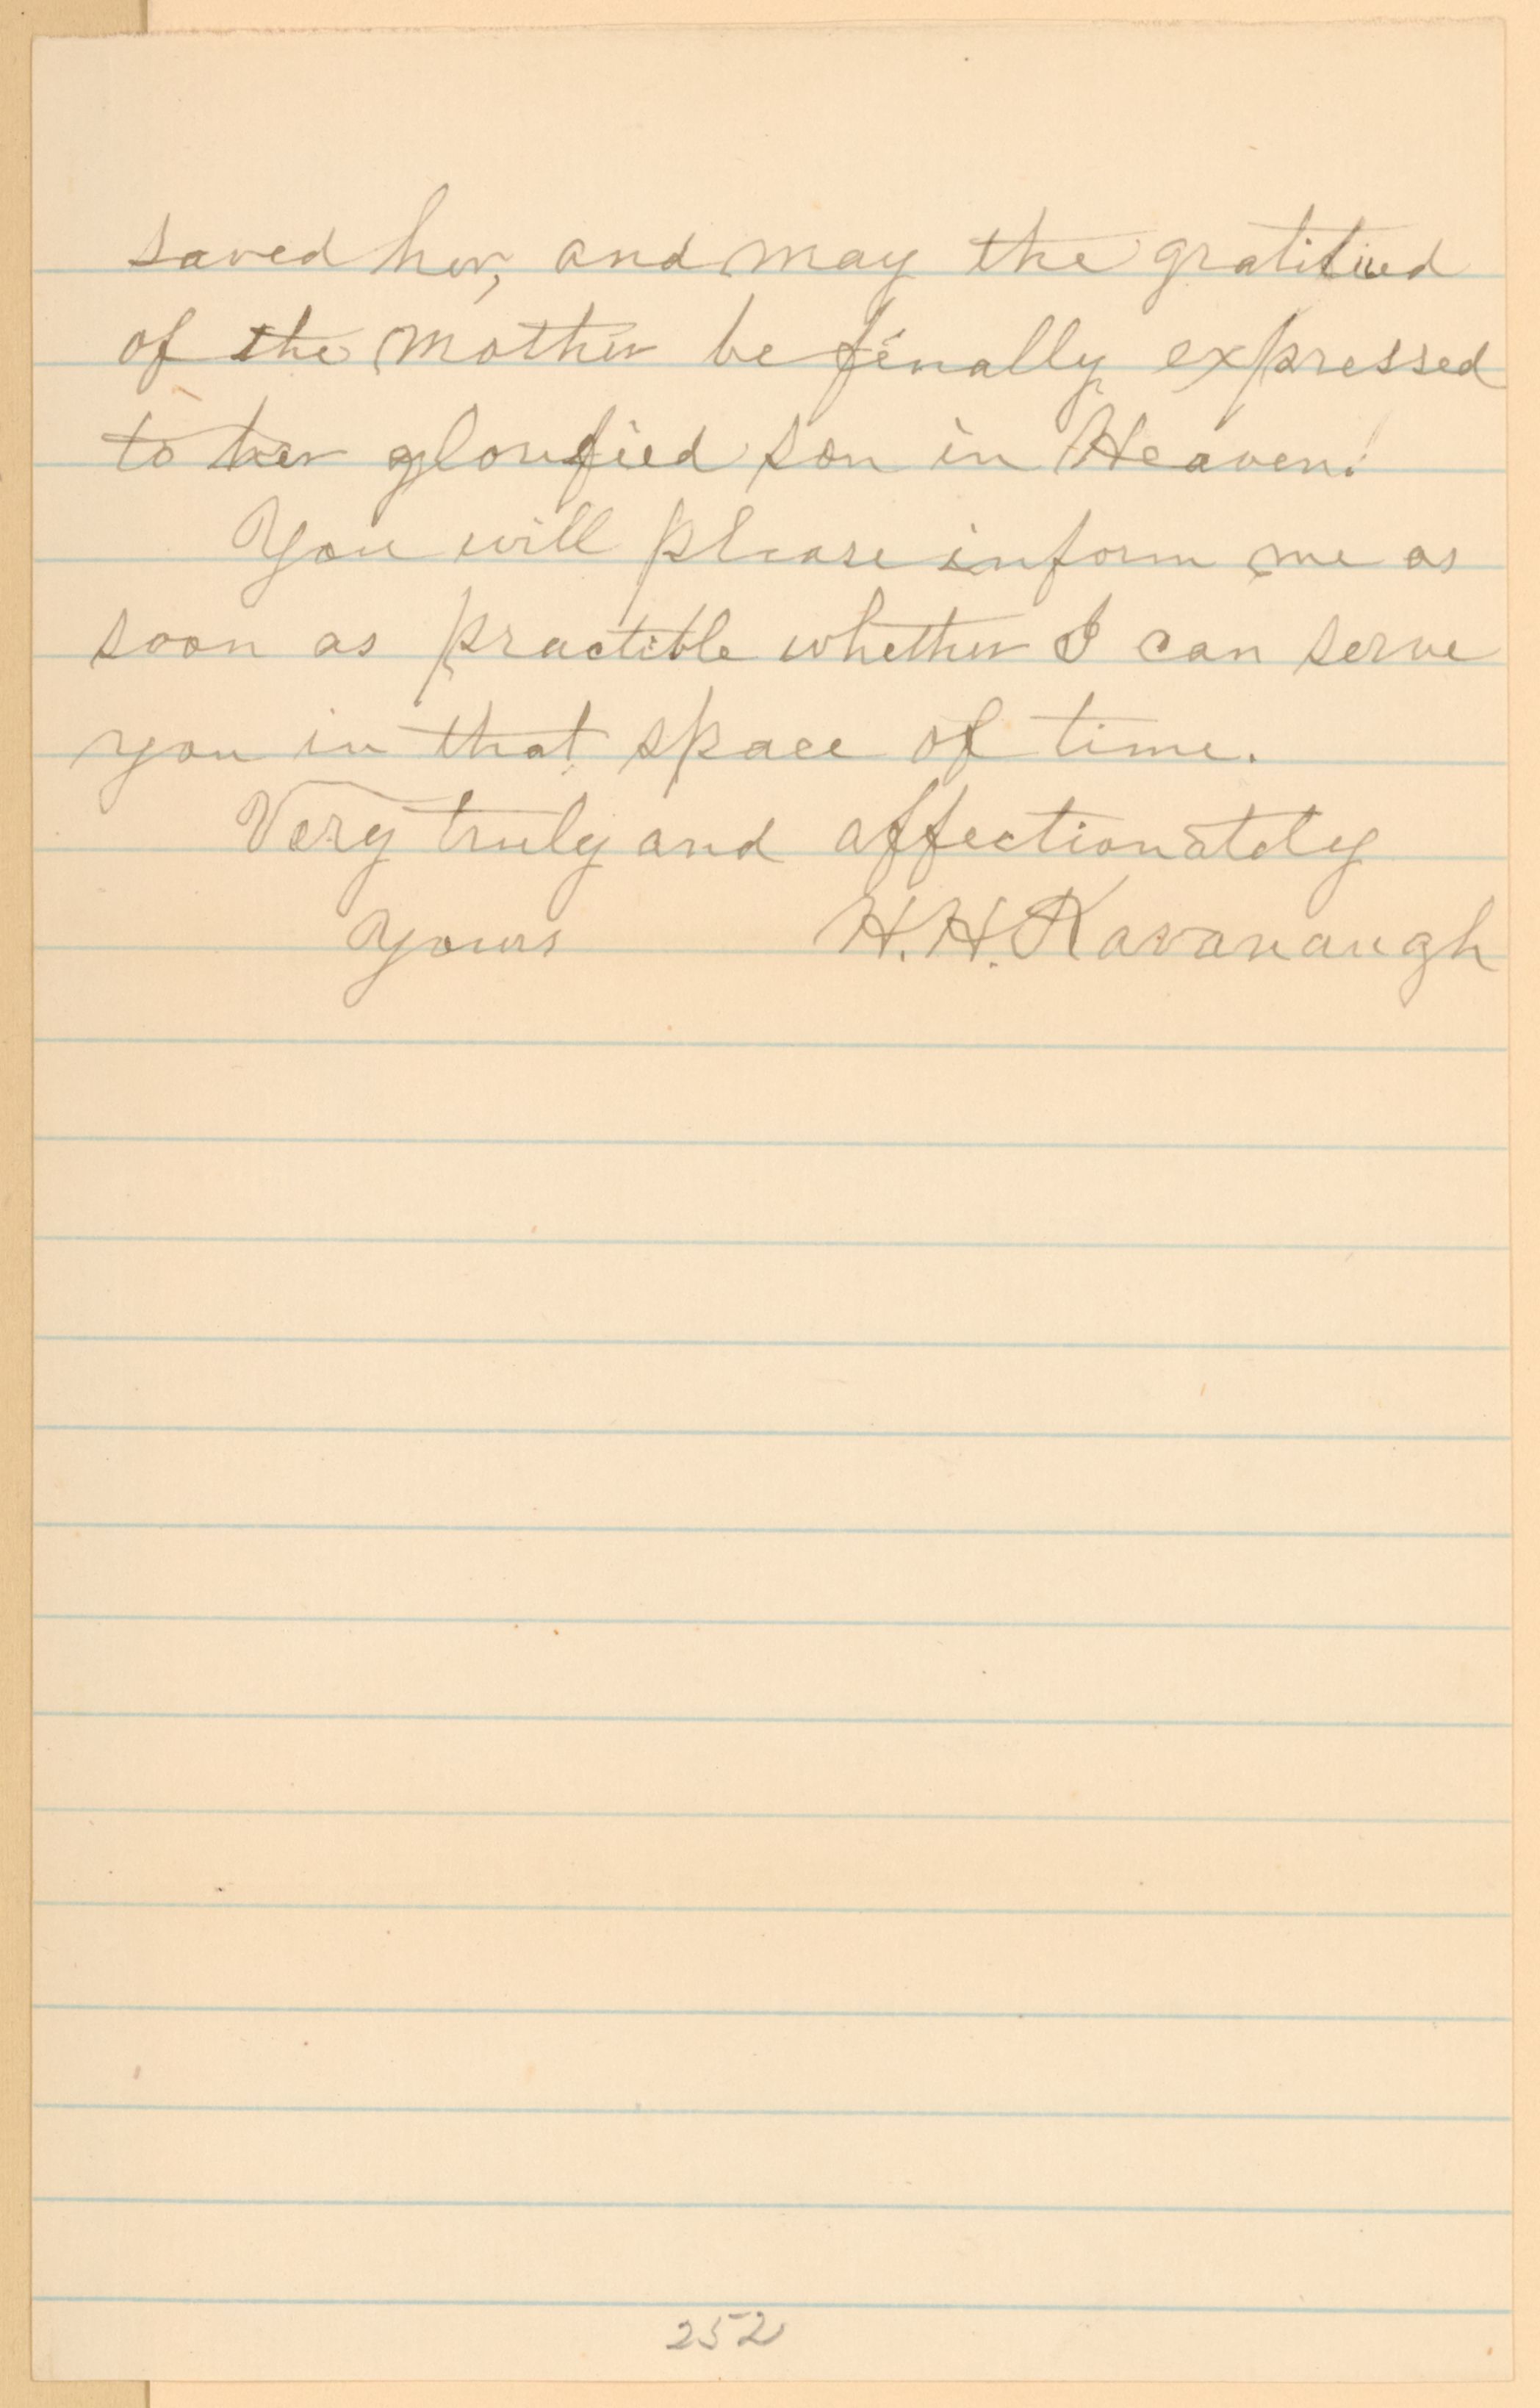 saved her, and may the gratitued
of the mother be finally expressed
to her glorified son in Heaven!
You will please inform me as
soon as practible whether I can serve
you in that space of time.
Very truly and affectionately
Yours H. H. Kavanaugh
252